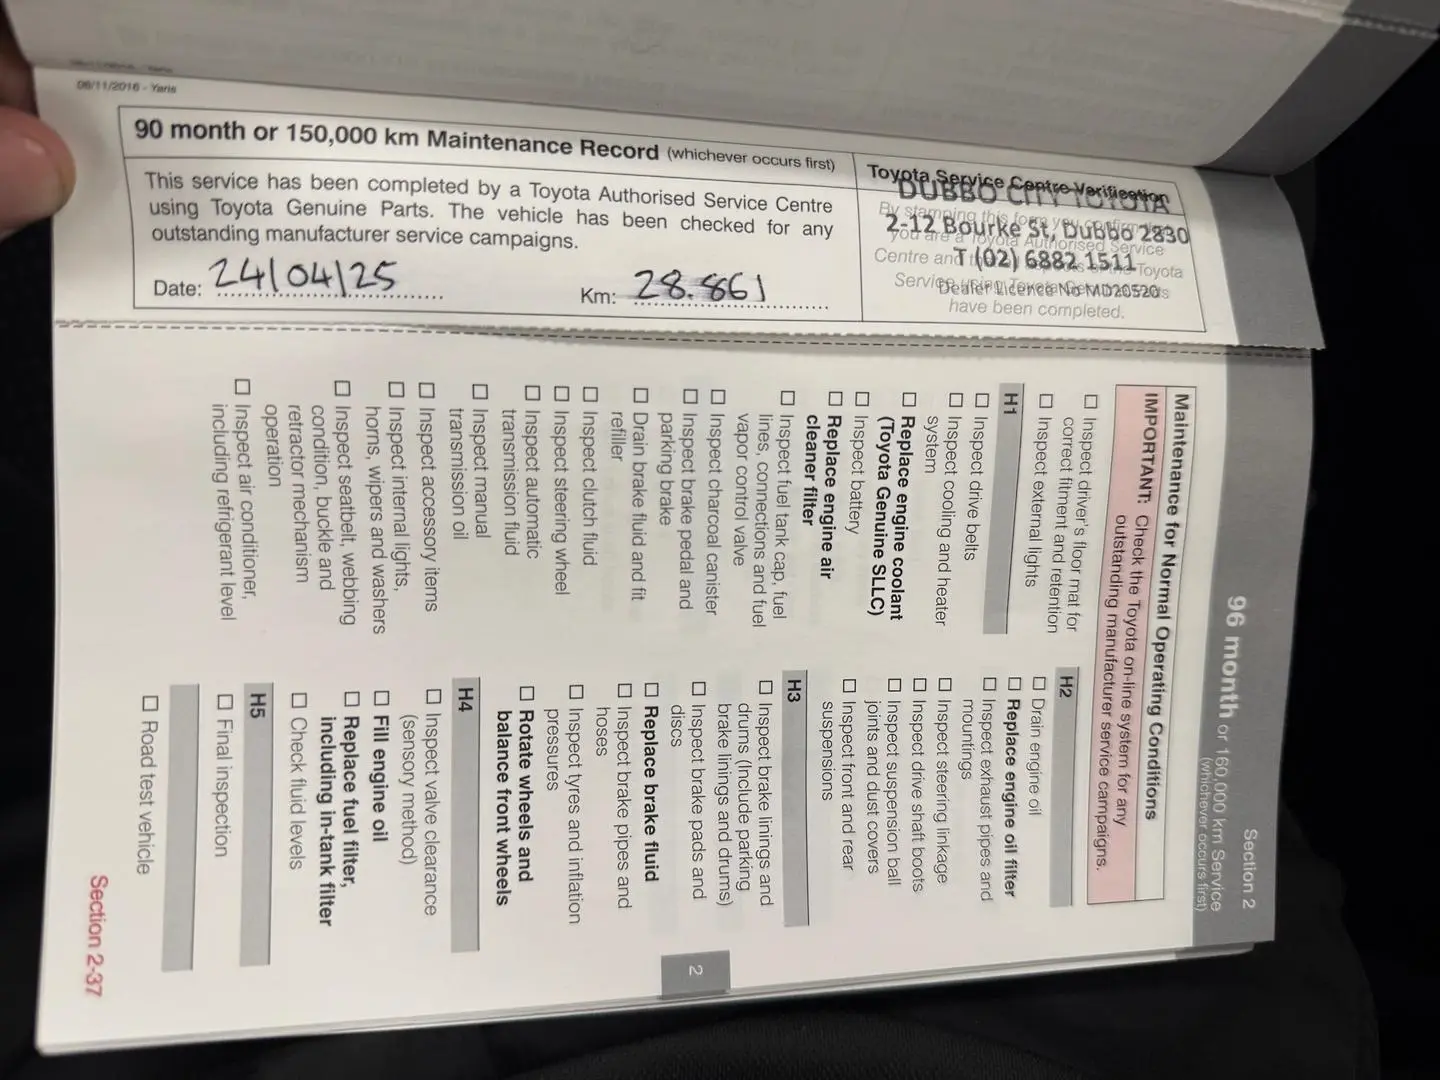 06/11/2016 - Yaris
90 month or 150,000 km Maintenance Record (whichever occurs first)
This service has been completed by a Toyota Authorised Service Centre
using Toyota Genuine Parts. The vehicle has been checked for any
outstanding manufacturer service campaigns.
Date: 24/04/25
Km: 28.861
Toyota Service Centre Verification
DUBBO CITY TOYOTA
By stamping this form you confirm
2-12 Bourke St, Dubbo 2830
you are a Toyota Authorised Service
T (02) 6882 1511
Centre and Toyota
Dealer Licence No MD20520
have been completed.
Section 2
96 month or 160,000 km Service
(whichever occurs first)
Maintenance for Normal Operating Conditions
IMPORTANT: Check the Toyota on-line system for any
outstanding manufacturer service campaigns.
☐ Inspect driver's floor mat for
correct fitment and retention
☐ Inspect external lights
H1
☐ Inspect drive belts
☐ Inspect cooling and heater
system
☐ Replace engine coolant
(Toyota Genuine SLLC)
☐ Inspect battery
☐ Replace engine air
cleaner filter
☐ Inspect fuel tank cap, fuel
lines, connections and fuel
vapor control valve
☐ Inspect charcoal canister
☐ Inspect brake pedal and
parking brake
☐ Drain brake fluid and fit
refiller
☐ Inspect clutch fluid
☐ Inspect steering wheel
☐ Inspect automatic
transmission fluid
☐ Inspect manual
transmission oil
☐ Inspect accessory items
☐ Inspect internal lights,
horns, wipers and washers
☐ Inspect seatbelt, webbing
condition, buckle and
retractor mechanism
operation
☐ Inspect air conditioner,
including refrigerant level
H2
☐ Drain engine oil
☐ Replace engine oil filter
☐ Inspect exhaust pipes and
mountings
☐ Inspect steering linkage
☐ Inspect drive shaft boots
☐ Inspect suspension ball
joints and dust covers
☐ Inspect front and rear
suspensions
H3
☐ Inspect brake linings and
drums (Include parking
brake linings and drums)
☐ Inspect brake pads and
discs
☐ Replace brake fluid
☐ Inspect brake pipes and
hoses
☐ Inspect tyres and inflation
pressures
☐ Rotate wheels and
balance front wheels
H4
☐ Inspect valve clearance
(sensory method)
☐ Fill engine oil
☐ Replace fuel filter,
including in-tank filter
☐ Check fluid levels
H5
☐ Final inspection
☐ Road test vehicle
2
Section 2-37